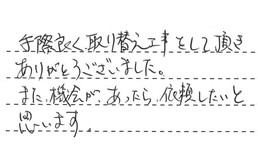 手際良く取り替え工事をして頂き
ありがとうございました。
また、機会が、あったら、依頼したいと
思います。